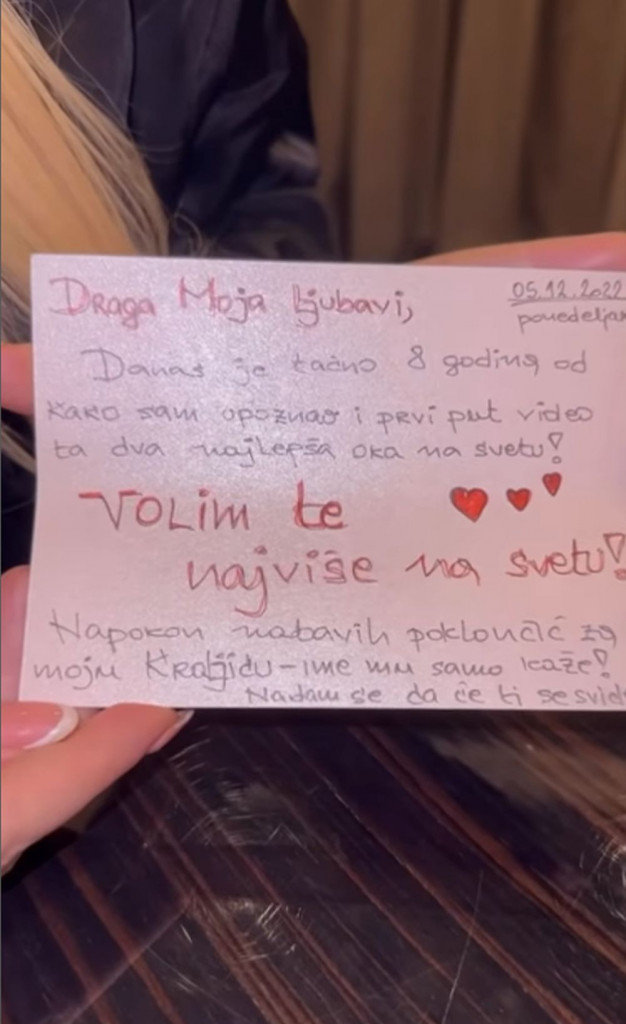 Draga Moja Ljubavi,
05.12.2022
ponedeljak
Danas je tačno 8 godina od
kako sam opoznao i prvi put video
ta dva najlepša oka na svetu!
VOLIM te
najviše na svetu!
Napokon nabavih poklončić za
moju Kraljicu - ime mu samo kaže!
Nadam se da će ti se svid